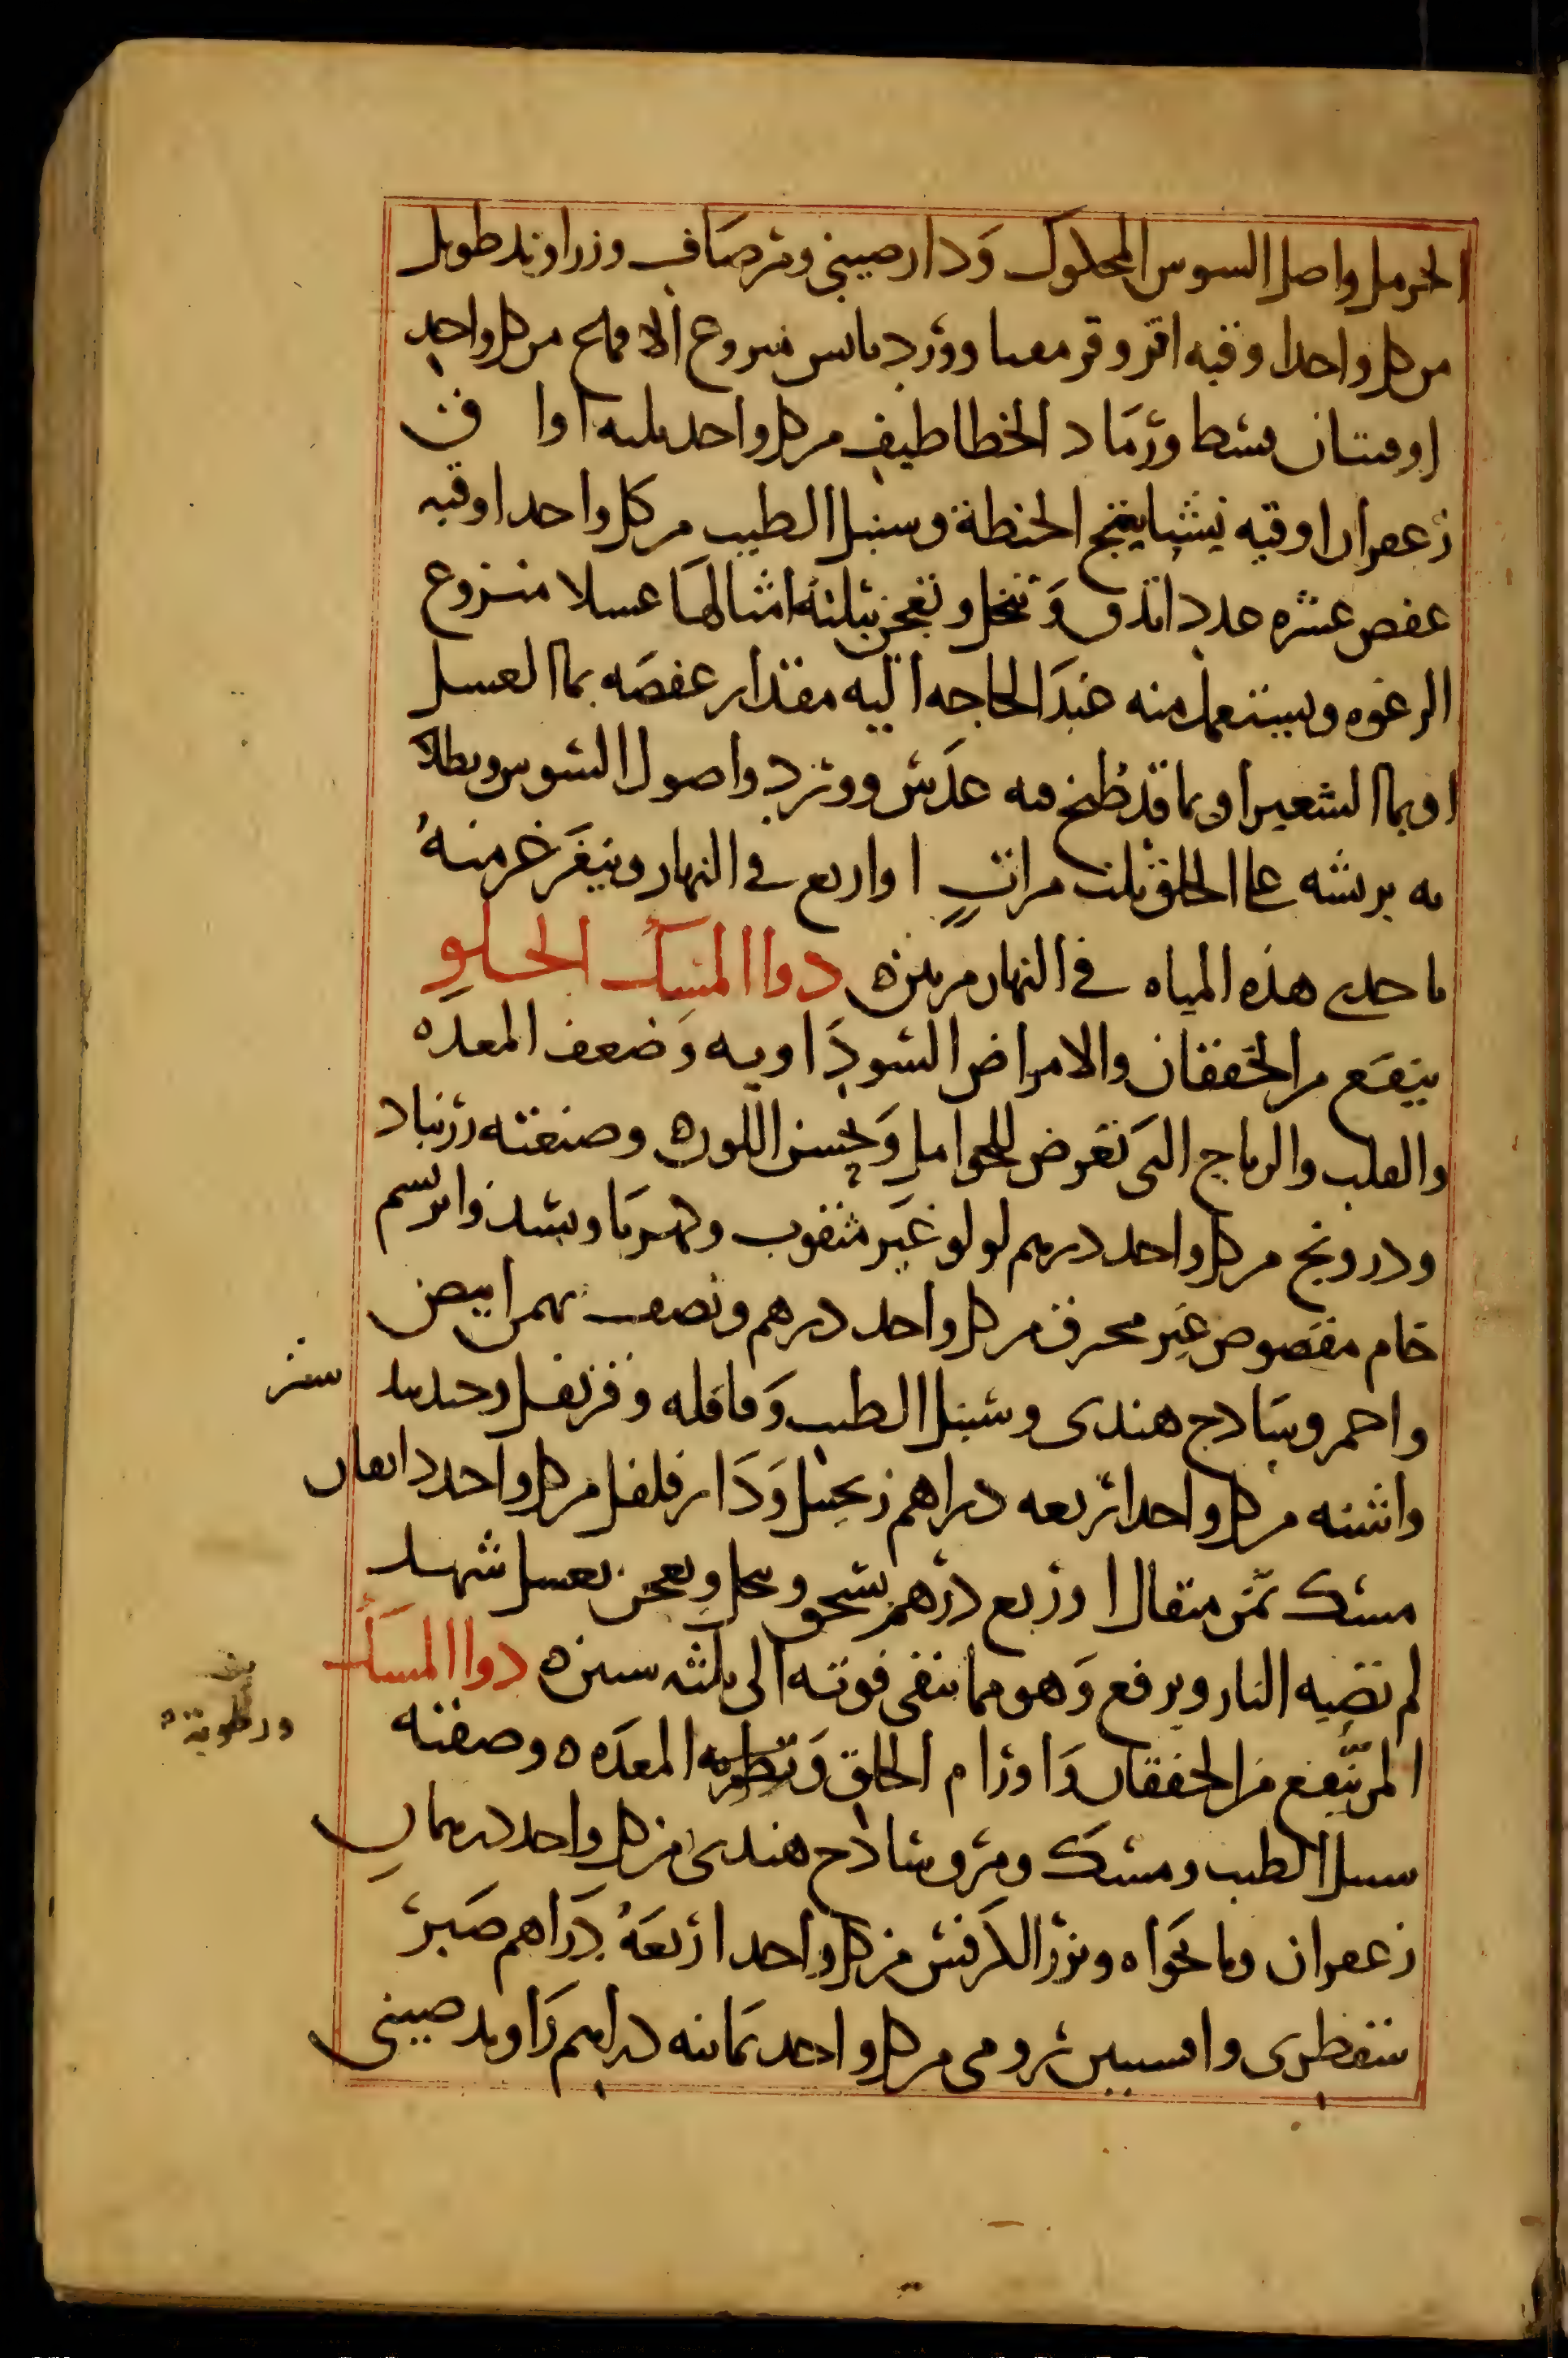 الحرمل واصل السوس المحكوك ودارصيني ومر صاف وزراوند طويل
من كل واحد اوقيه اقروقرمعما وورد يابس منزوع الاقماع من كل واحد
اوقيتان قسط ورماد الخطاطيف من كل واحد ثلثه اواق
زعفران اوقيه نشاستج الحنطة وسنبل الطيب من كل واحد اوقيه
عفص عشره عدد اتدق وتنخل وتعجن بثلثة امثالها عسلا منزوع
الرغوه ويستعمل منه عند الحاجه اليه مقدار عفصه بما العسل
او بما الشعير او بما قد طبخ فيه عدس وورد واصول السوس ويطلا
به بريشه على الحلق ثلث مرات او اربع في النهار ويتغرغر منه
باحدى هذه المياه في النهار مرتين ه دوا المسك الحلو
ينفع من الخفقان والامراض السوداويه وضعف المعده
والقلب والرياح التى تعرض للحوامل ويحسن اللون ه وصنعته زرنباد
ودرونج من كل واحد درهم لولو غير مثقوب وكهربا وبسد وابريسم
خام مقصوص غير محرق من كل واحد درهم ونصف بهمن ابيض
واحمر وسادج هندى وسنبل الطيب وقاقله وقرنفل وجندبيدستر
واشنه من كل واحد اربعه دراهم زنجبيل ودارفلفل من كل واحد دانقان
مسك ثمن مثقال او ربع درهم يسحق وينخل ويعجن بعسل شهد
لم تصيبه النار ويرفع وهو مما تبقى قوته الى ثلثه سنين ه دوا المسك
المر ينفع من الخفقان واورام الحلق المعده ه وصفته
ورطوبة ه
سنبل الطيب ومسك ومر وسادج هندى من كل واحد درهمان
زعفران ونانخواه وبزر الكرفس من كل واحد اربعة دراهم صبر
سقطرى وافسنتين رومى من كل واحد ثمانيه دراهم راوند صينى